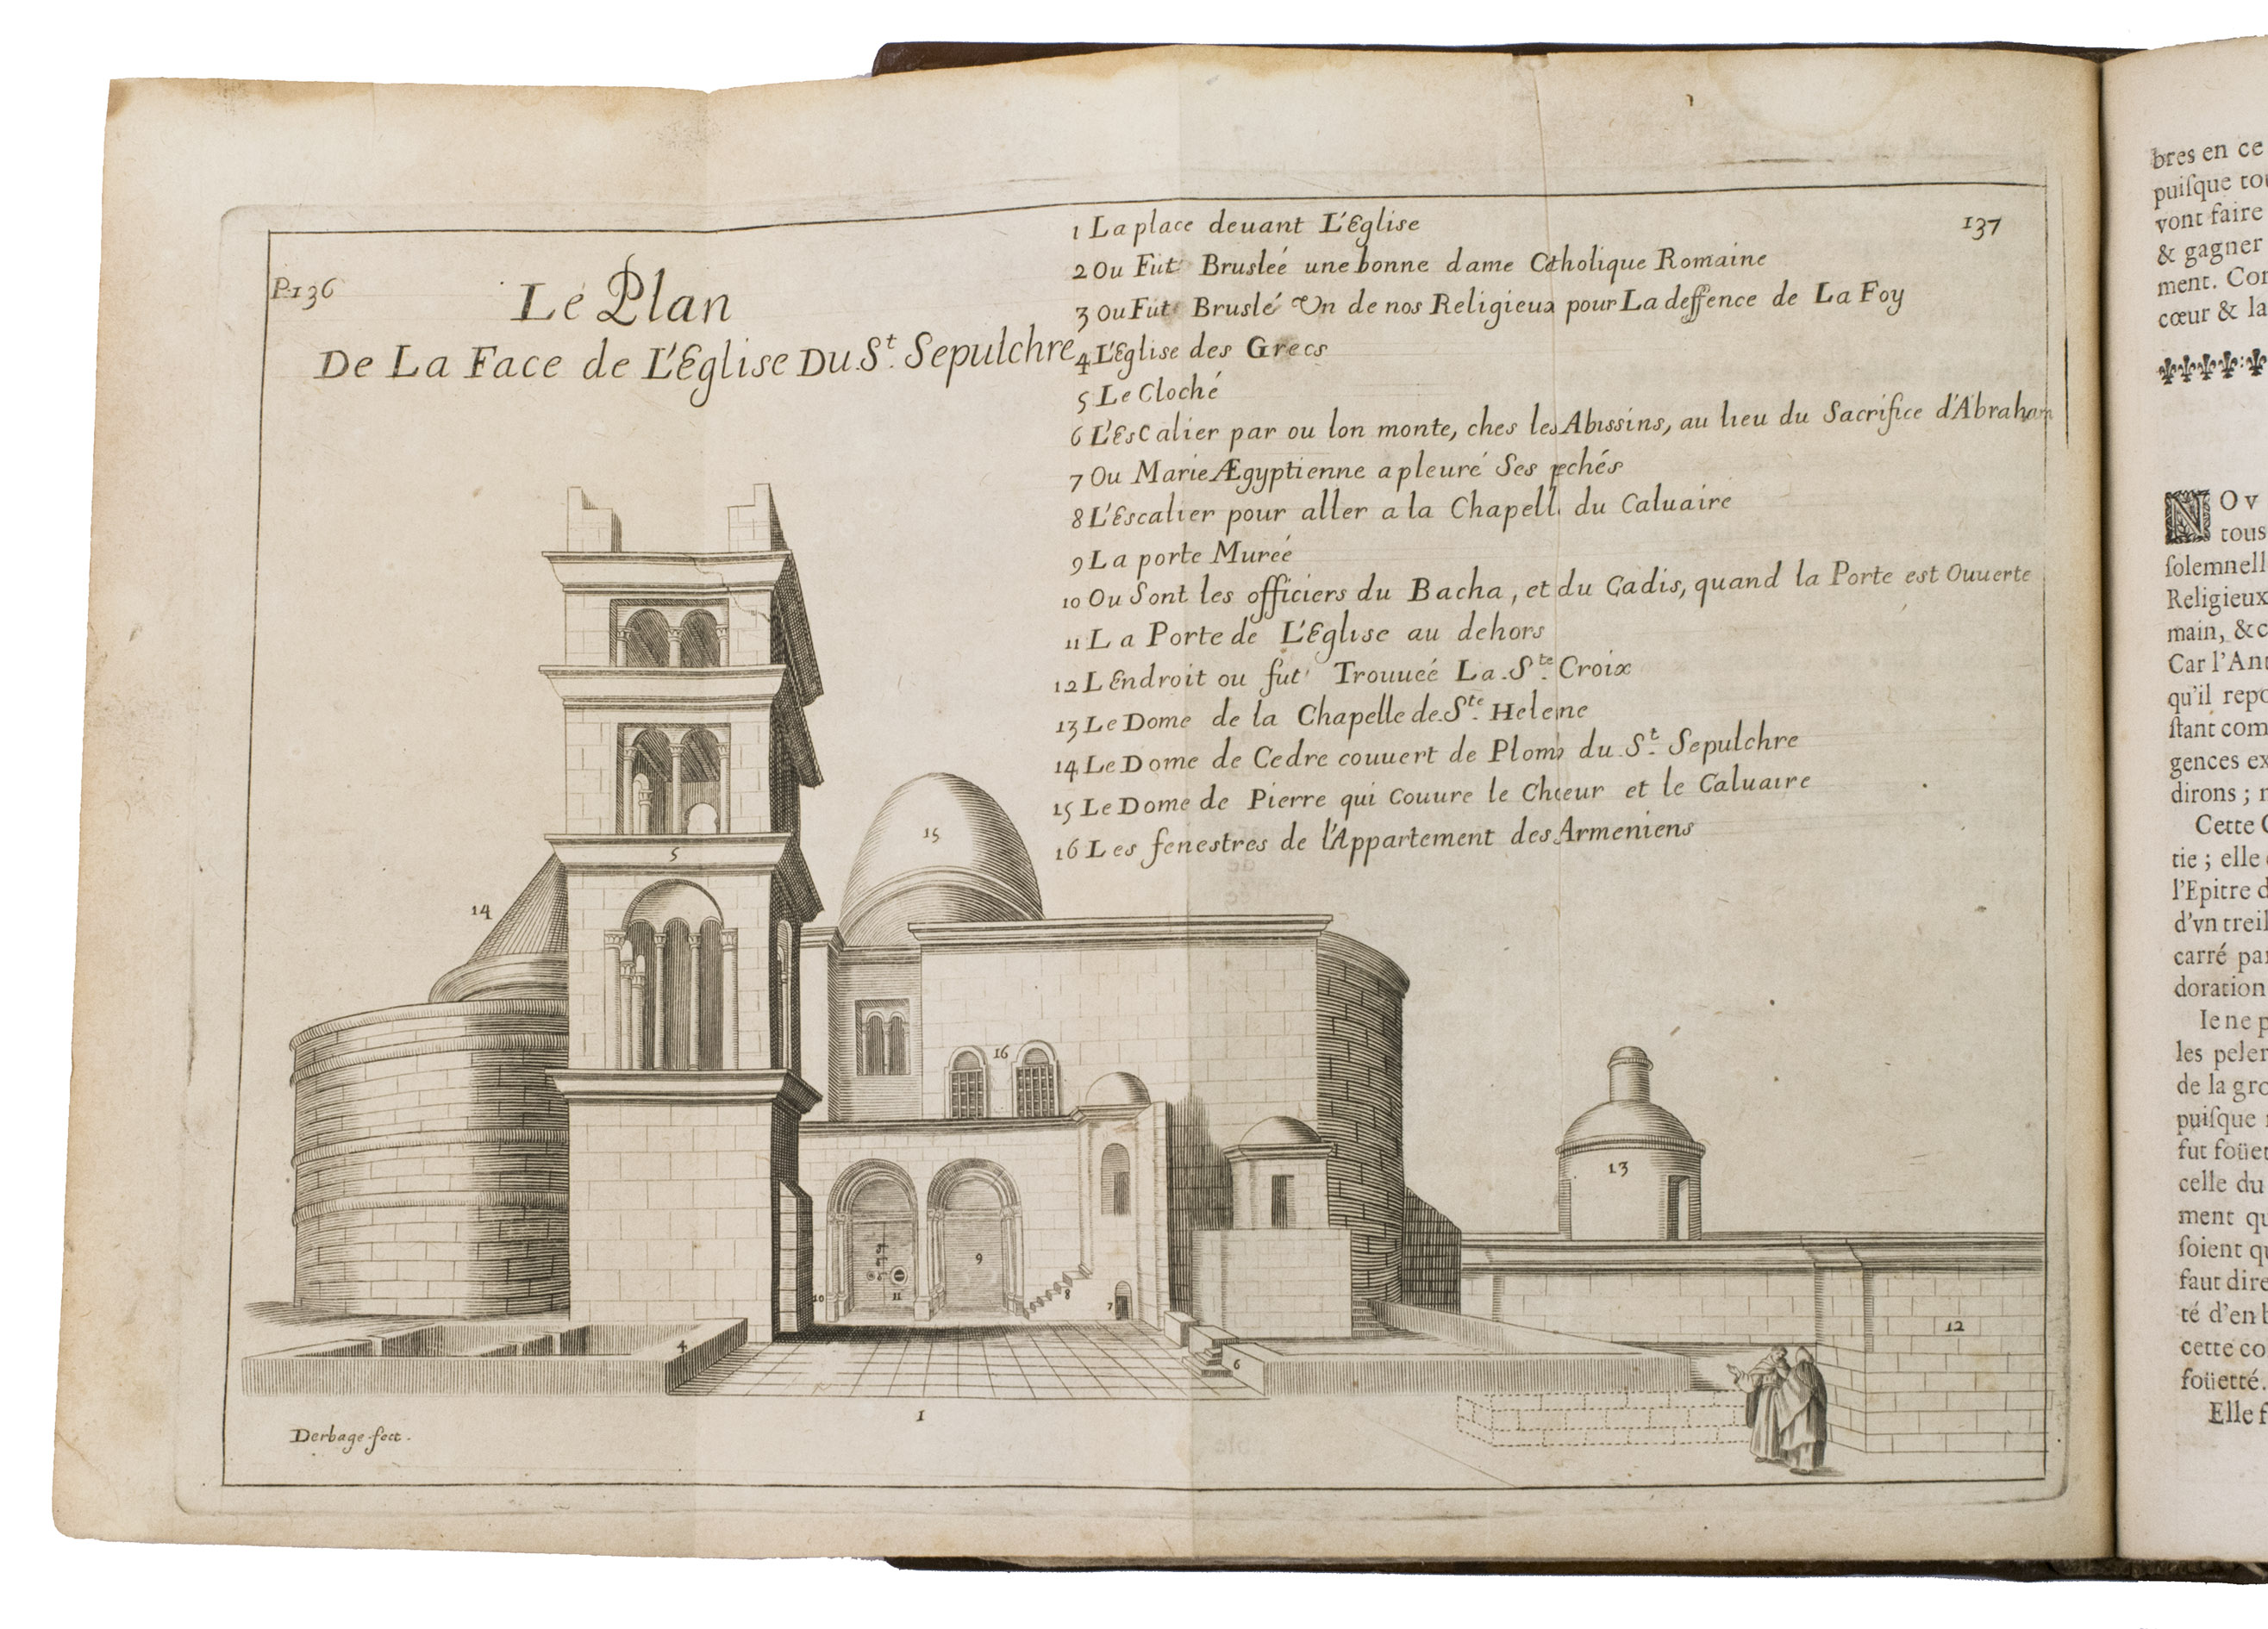 P.136
137
Le Plan
De La Face de L'Eglise Du St. Sepulchre
1 La place deuant L'Eglise
2 Ou Fut Brusleé une bonne dame Catholique Romaine
3 Ou Fut Bruslé Un de nos Religieux pour La deffence de La Foy
4 L'Eglise des Grecs
5 Le Cloché
6 L'Escalier par ou lon monte, ches les Abissins, au lieu du Sacrifice d'Abraham
7 Ou Marie Ægyptienne a pleuré Ses pechés
8 L'Escalier pour aller a la Chapell du Caluaire
9 La porte Mureé
10 Ou Sont les officiers du Bacha, et du Cadis, quand la Porte est Ouuerte
11 La Porte de L'Eglise au dehors
12 L Endroit ou fut Trouueé La Ste. Croix
13 Le Dome de la Chapelle de Ste. Helene
14 Le Dome de Cedre couuert de Plomb du St. Sepulchre
15 Le Dome de Pierre qui Couure le Chœur et le Caluaire
16 Les fenestres de l'Appartement des Armeniens
5
15
14
16
13
9
10
11
8
7
12
4
6
1
Derbage fect.
bres en ce
puisque tou
vont faire
& gagner
ment. Con
cœur & la
NOV
tous
solemnell
Religieux
main, & c
Car l'Ant
qu'il repo
stant com
gences ex
dirons; n
Cette C
tie; elle
l'Epitre d
d'vn treil
carré par
doration
Ie ne p
les peler
de la gro
puisque
fut foüet
celle du
ment qu
soient qu
faut dire
té d'en b
cette co
foüetté.
Elle f